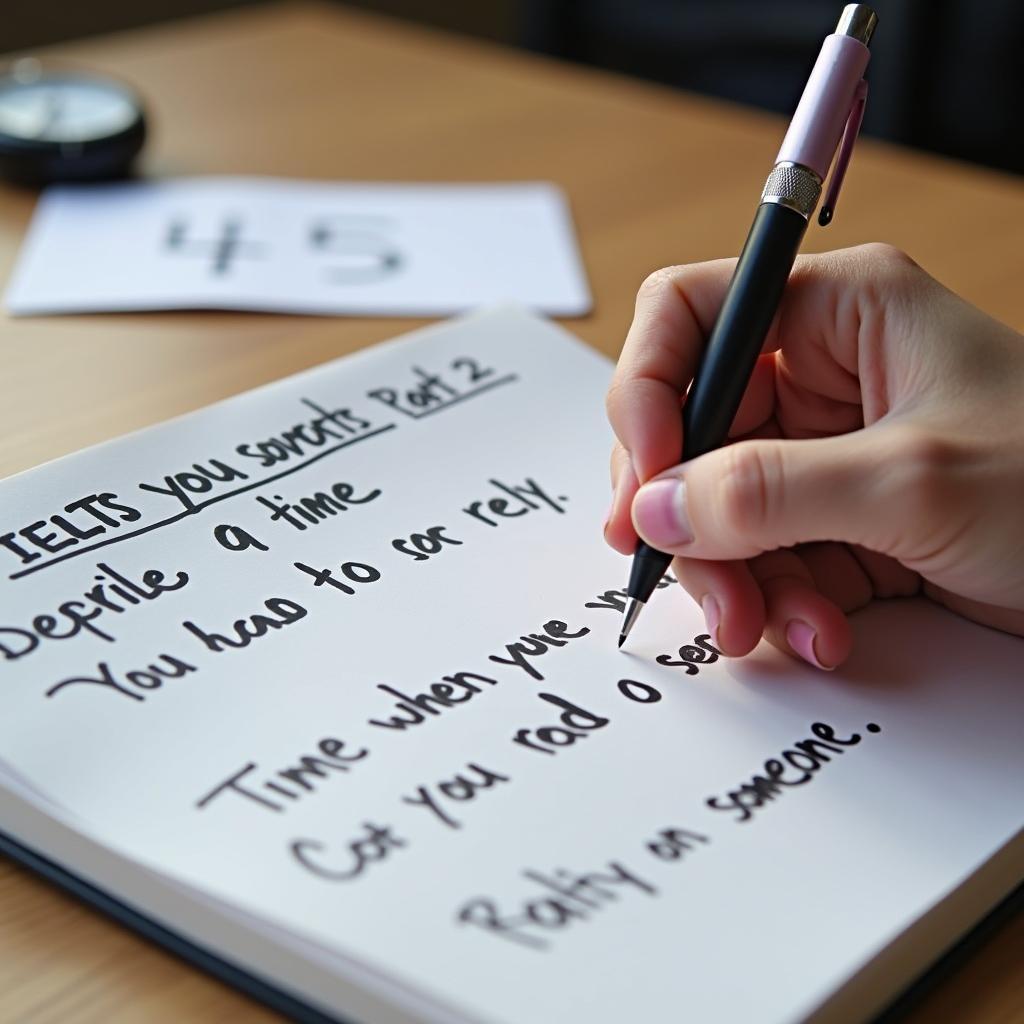 45
IELTS you sovrots Part 2
a time
You had to sor rely.
Time when your
Cot you rad o ser
on someone.